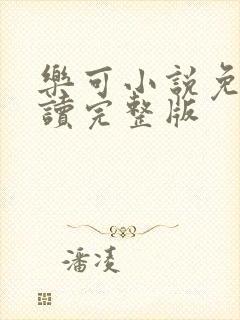 樂可小說免
讀完整版
潘凌